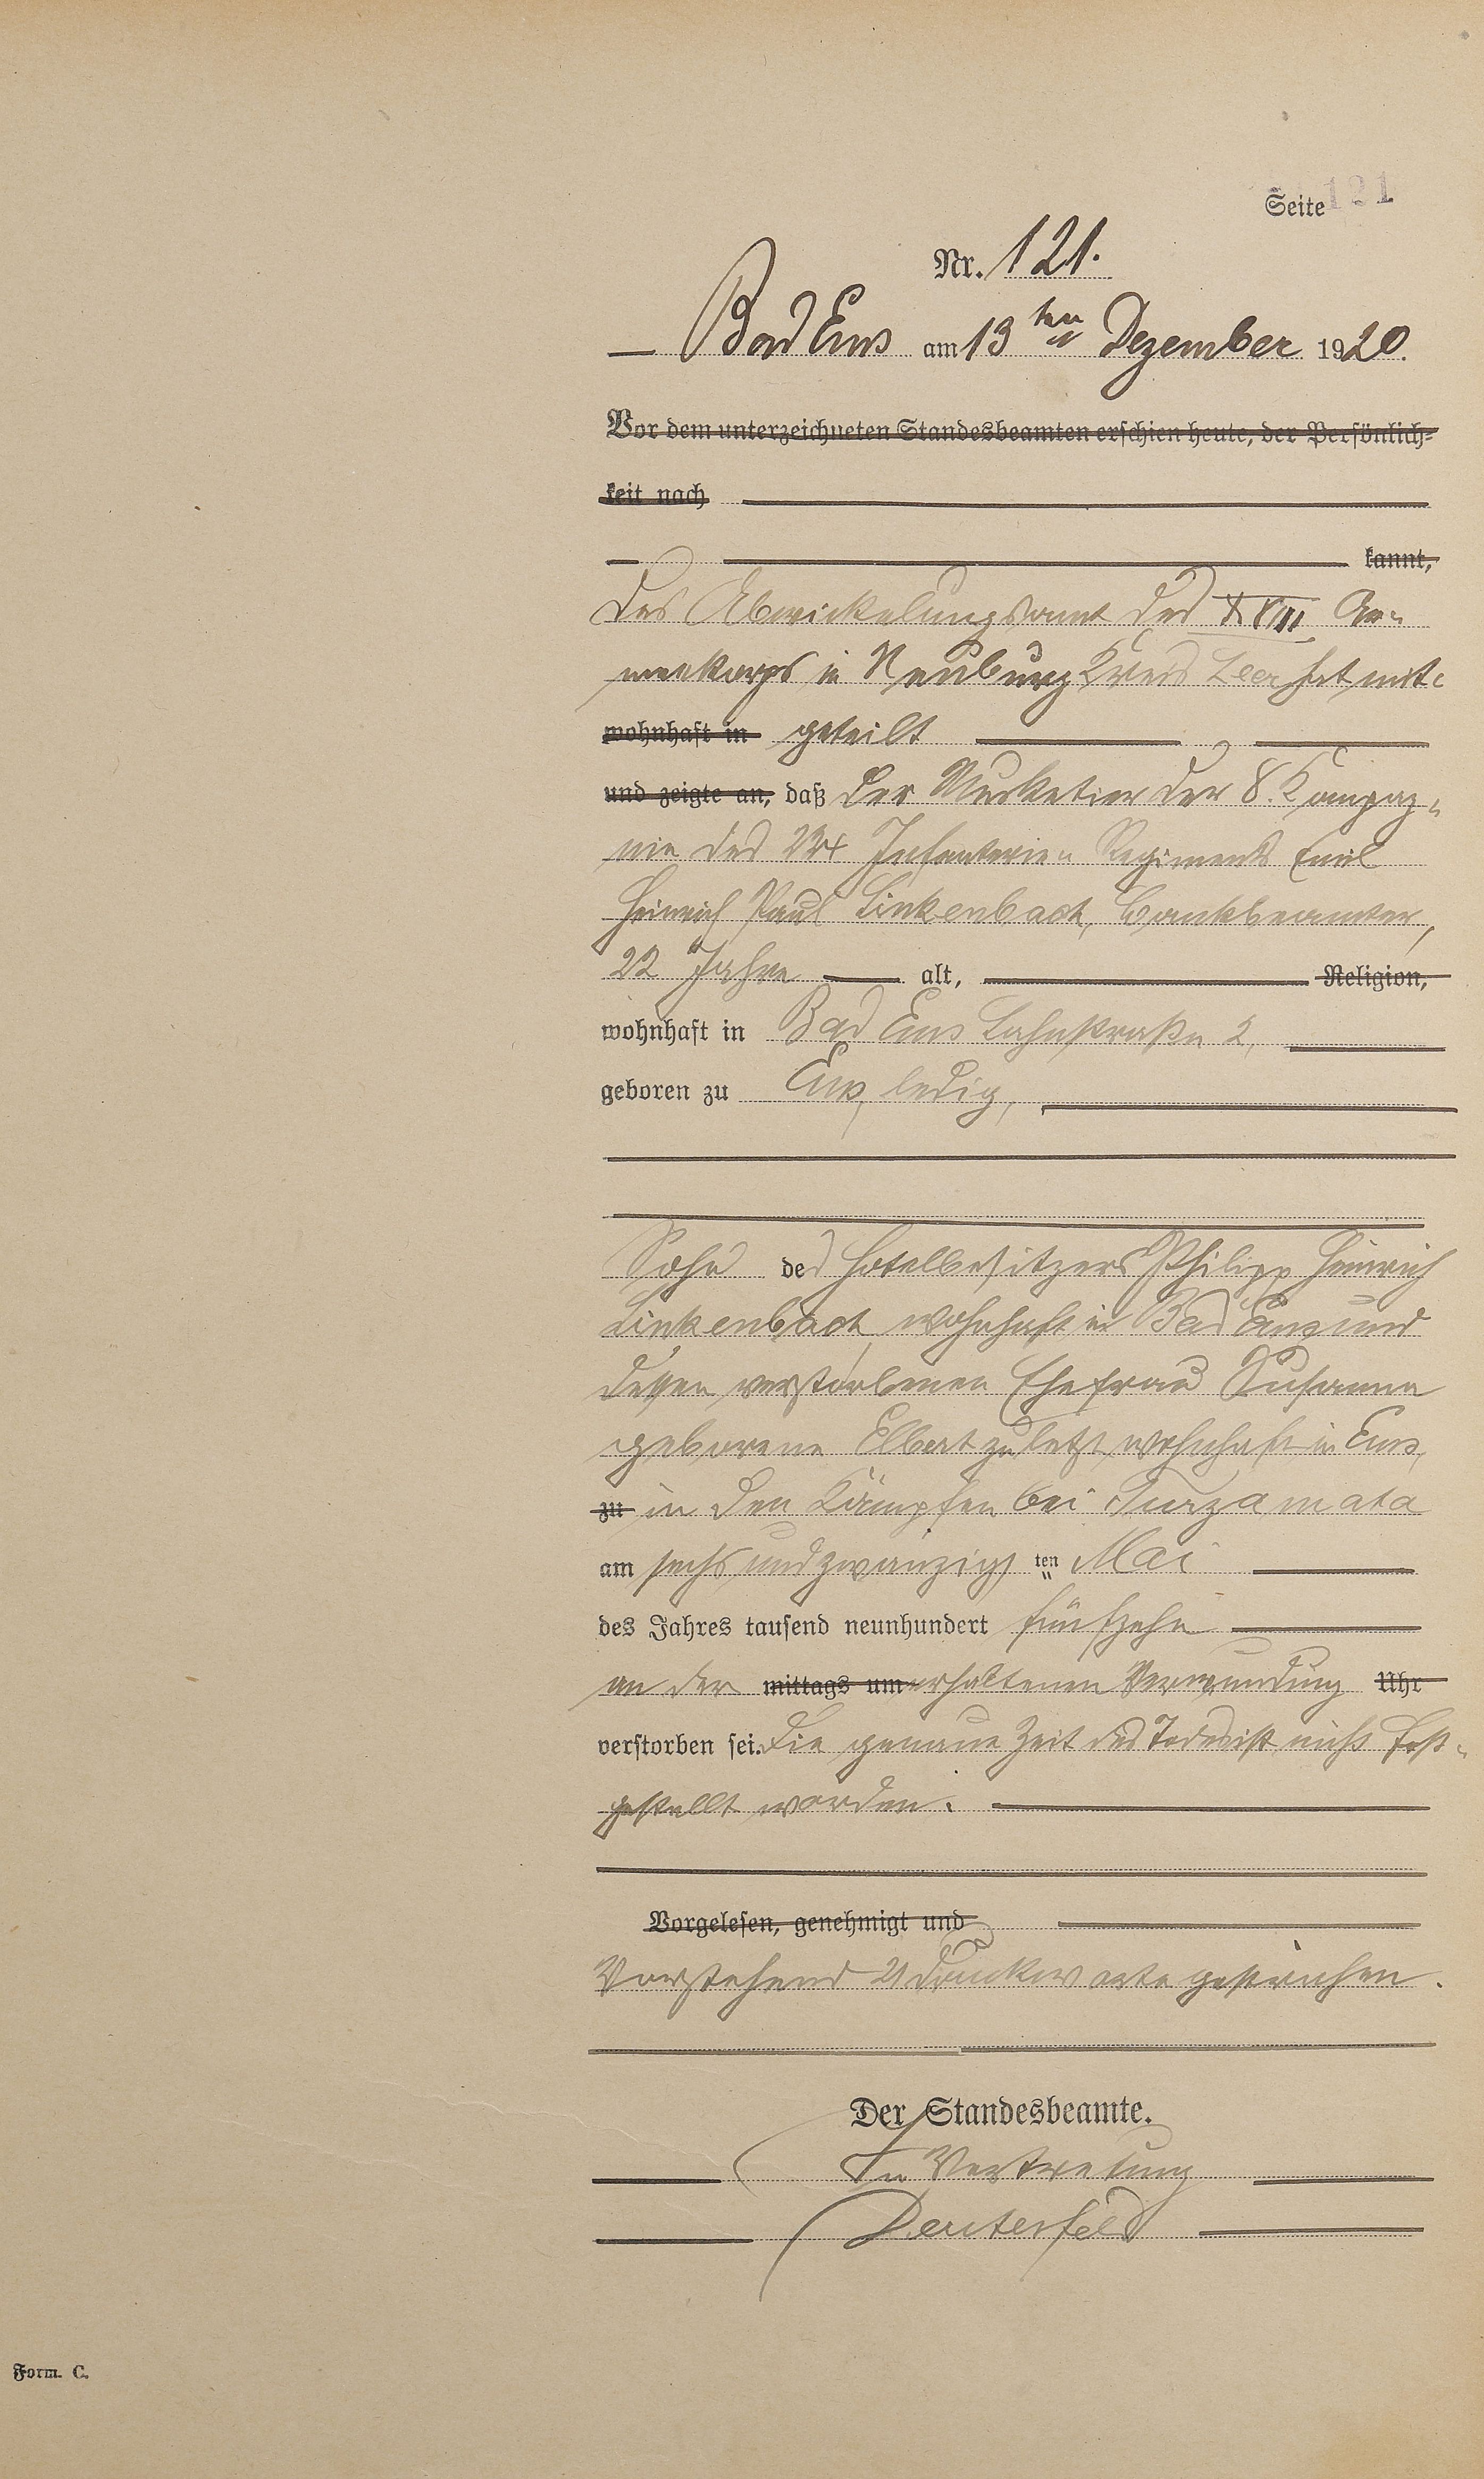 Seite 121
Nr. 121.
Bad Ems am 13ten Dezember 1920.
Vor dem unterzeichneten Standesbeamten erschien heute, der Persönlich-
keit nach
kannt,
Das Abwickelungsamt des XVIII Ar-
meekorps in Kreis Leer hat mit-
wohnhaft in geteilt
und zeigte an, daß der Musketier der 8. Kompag-
nie des Infanterie- Regiments Emil
Heinrich Paul Linkenbach, Bankbeamter,
22 Jahre alt, Religion,
wohnhaft in Bad Ems Lahnstraße 2,
geboren zu Ems, ledig,
Sohn des Hotelbesitzers Philipp Heinrich
Linkenbach, wohnhaft in Bad Ems und
dessen verstorbenen Ehefrau Susanna
geborene Elbert zuletzt wohnhaft in Ems,
zu in den Kämpfen bei
am sechsundzwanzigsten Mai
des Jahres tausend neunhundert fünfzehn
an der mittags um erhaltenen Verwundung Uhr
verstorben sei. Die genaue Zeit des Todes ist nicht fest-
gestellt worden.
Vorgelesen, genehmigt und
Vorstehend 21 Druckworte gestrichen.
Der Standesbeamte.
In Vertretung
Form. C.